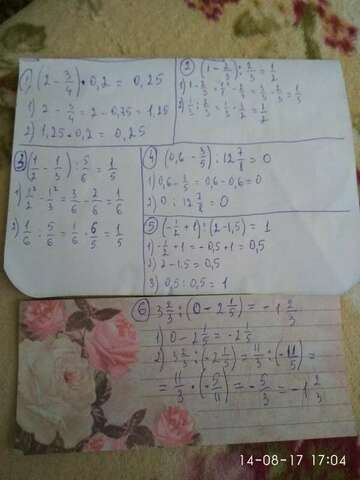 ① (2 - 3/4) • 0,2 = 0,25
1) 2 - 3/4 = 2 - 0,75 = 1,25
2) 1,25 • 0,2 = 0,25
② (1 - 2/3) : 2/3 = 1/2
1) 1 - 2/3 = 3/3 - 2/3 = 1/3
2) 1/3 : 2/3 = 1/3 • 3/2 = 1/2
③ (1/2 - 1/3) : 5/6 = 1/5
1) 1/2 - 1/3 = 3/6 - 2/6 = 1/6
2) 1/6 : 5/6 = 1/6 • 6/5 = 1/5
④ (0,6 - 3/5) : 12 7/8 = 0
1) 0,6 - 3/5 = 0,6 - 0,6 = 0
2) 0 : 12 7/8 = 0
⑤ (-1/2 + 1) : (2 - 1,5) = 1
1) -1/2 + 1 = -0,5 + 1 = 0,5
2) 2 - 1,5 = 0,5
3) 0,5 : 0,5 = 1
⑥ 3 2/3 : (0 - 2 1/5) = -1 2/3
1) 0 - 2 1/5 = -2 1/5
2) 3 2/3 : (-2 1/5) = 11/3 : (-11/5) =
= 11/3 • (-5/11) = -5/3 = -1 2/3
14-08-17 17:04